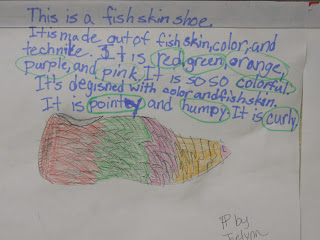 This is a fish skin shoe.
It is made out of fish skin, color, and
technike. It is red, green, orange,
purple, and pink. It is so so colorful.
It's degisned with color and fish skin.
It is pointey and humpy. It is curly.
by